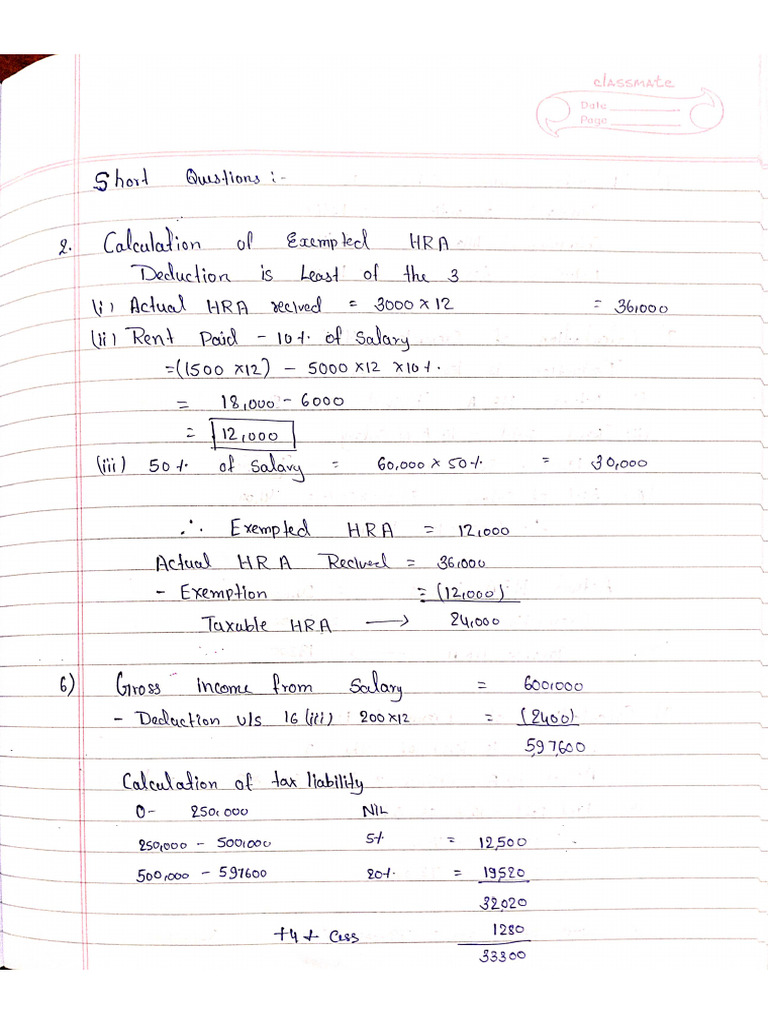 classmate
Date
Page
Short Questions :-
2. Calculation of Exempted HRA
Deduction is Least of the 3
(i) Actual HRA recived = 3000 x 12 = 36,000
(ii) Rent Paid - 10% of Salary
= ((1500 x12) - 5000 x12 x10%.
= 18,000 - 6000
= 12,000
(iii) 50% of Salary = 60,000 x 50% = 30,000
∴ Exempted HRA = 12,000
Actual HRA Recived = 36,000
- Exemption = (12,000)
Taxable HRA → 24,000
6) Gross income from Salary = 600,000
- Deduction u/s 16 (iii) 200 x12 = (2400)
5,97,600
Calculation of tax liability
0 - 250,000 NIL
250,000 - 500,000 5% = 12,500
500,000 - 597600 20% = 19520
32,020
+4% Cess 1280
33300